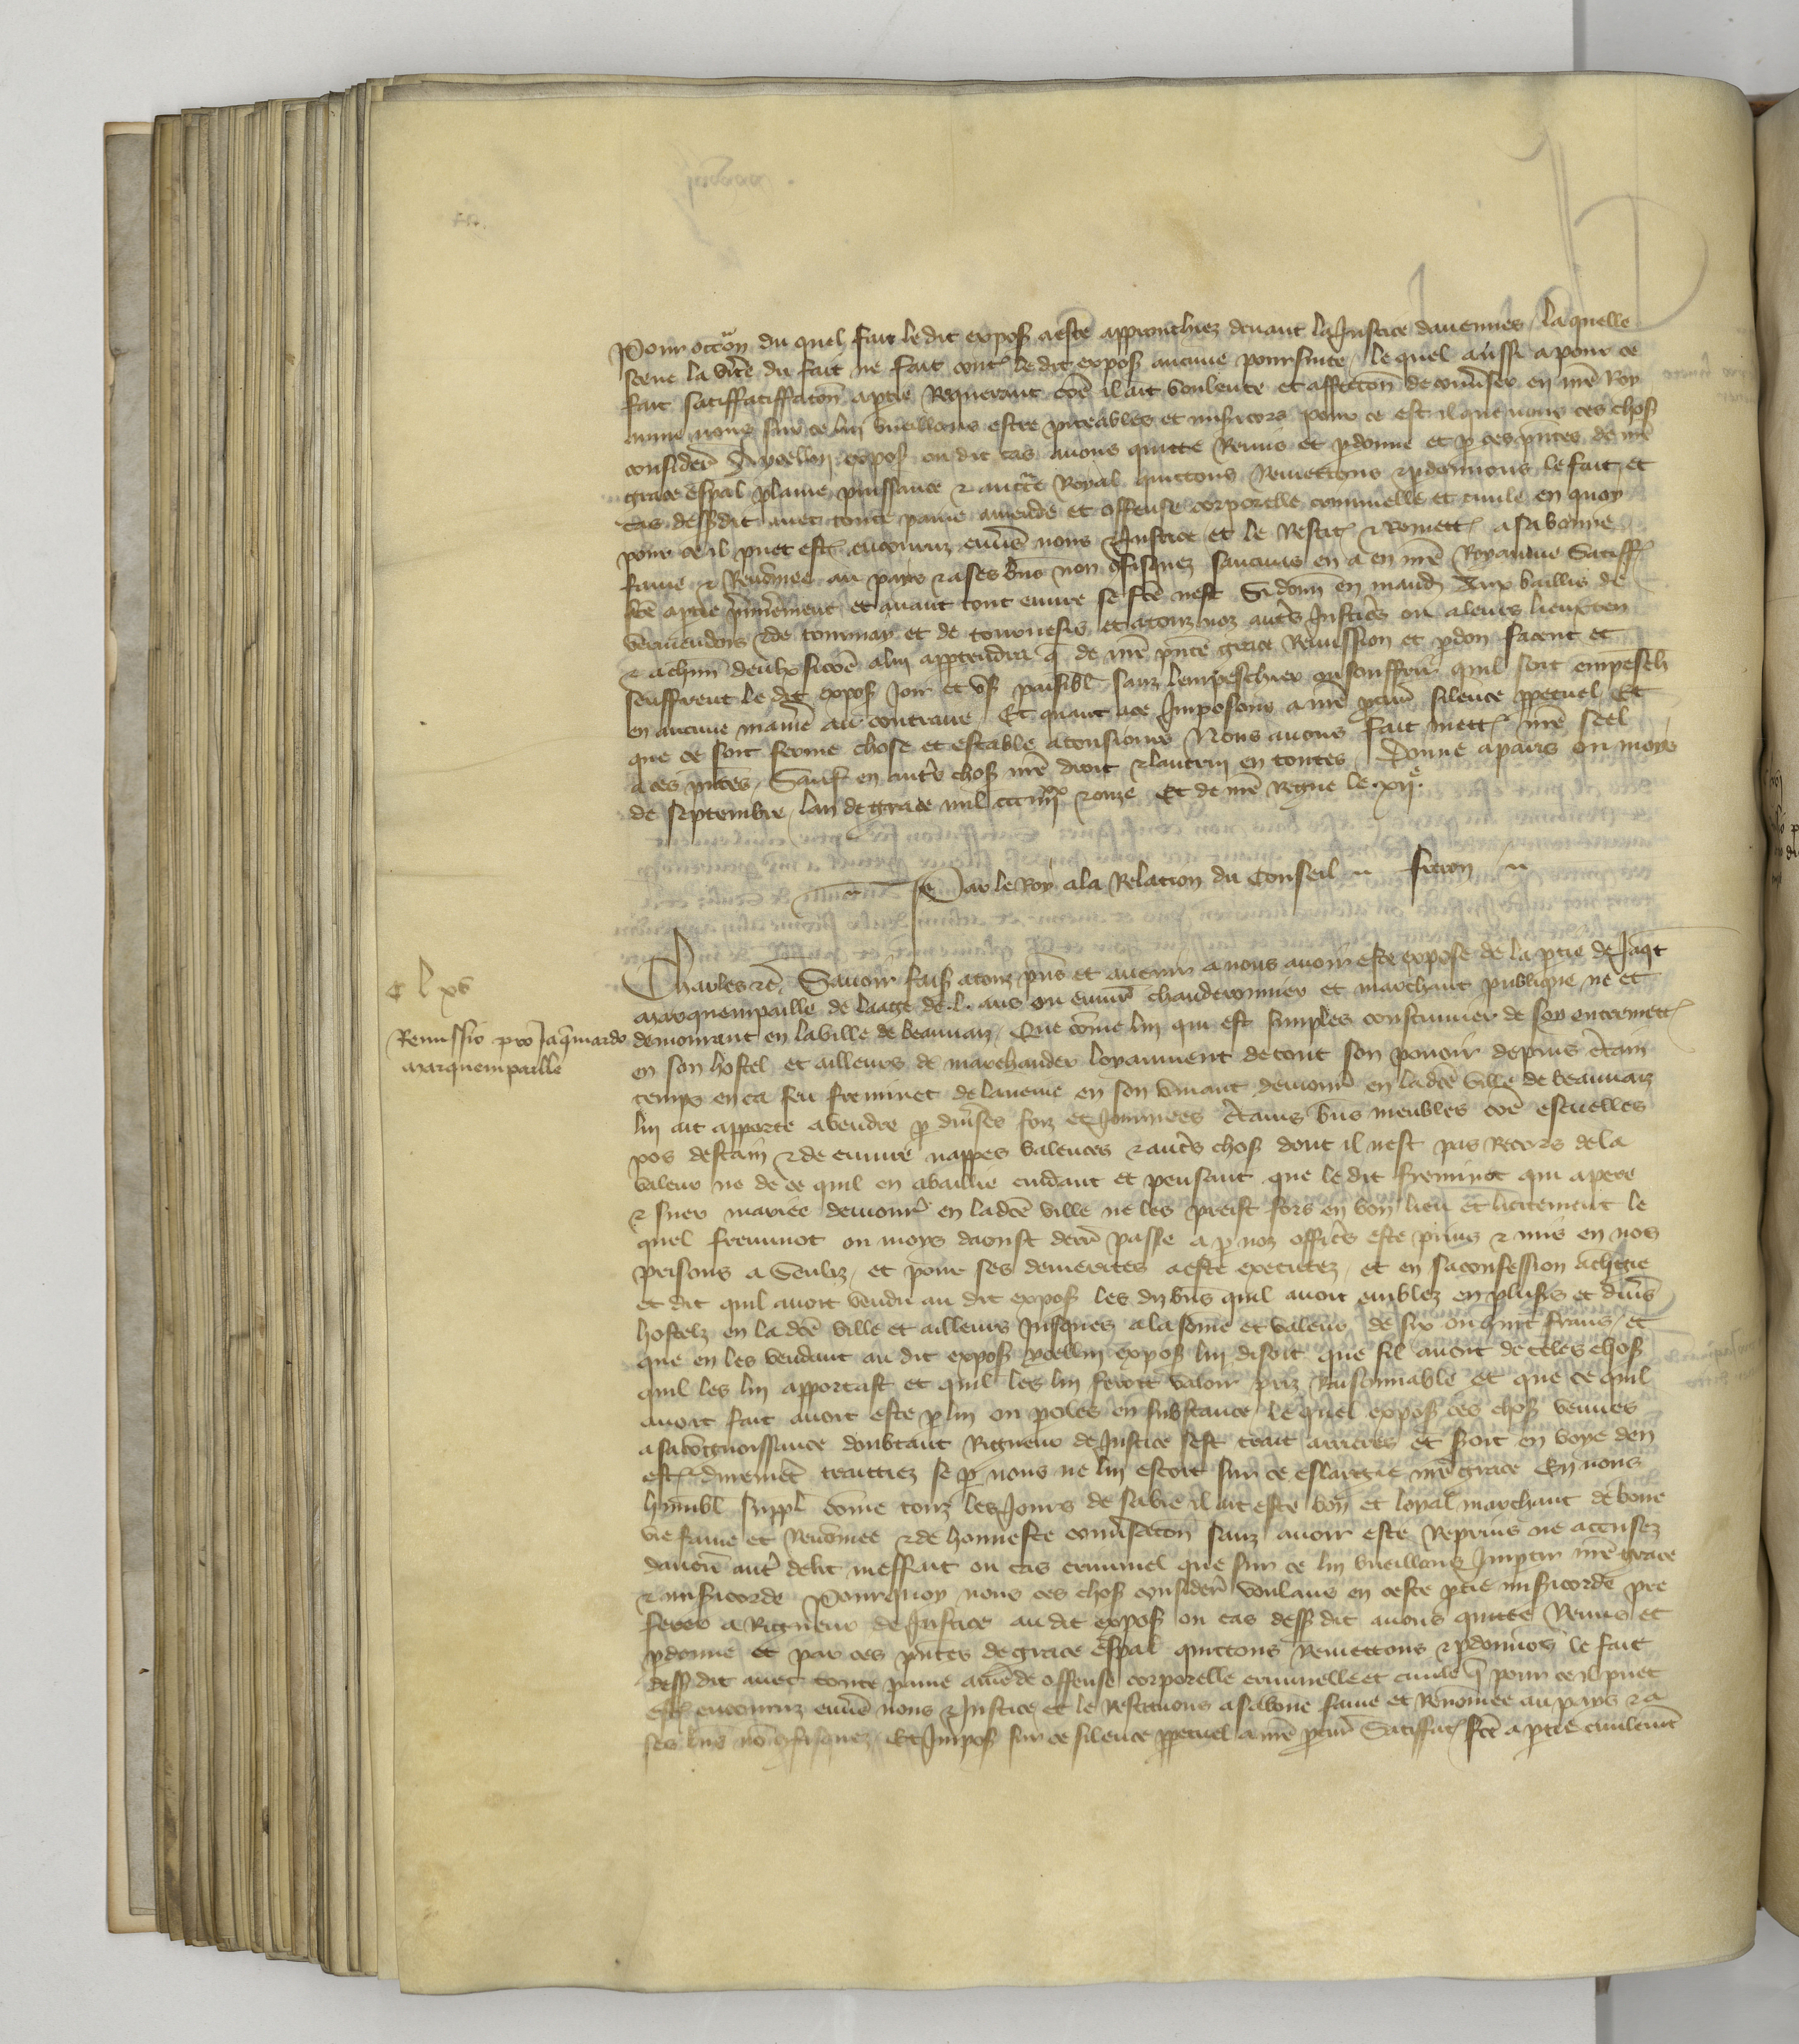 Pour occon du quel fait le dit expos a este approuchiez devant la Justice davennes / la quelle
sceue la vite du fait ne fait cont le dit expos aucune poursuite / le quel aussi a pour ce
fait satiffatiffacon a ptie Requerant coe il ait voulente et affeccon de conuser en nre Roy
aume nous sur ce lui vueillons estre piteables et misicors pour ce est il que nous ces chos
consideres a ycellui expos ou dit cas auons quitte Remis et pdonne et p ces pntes de nre
grace espal plaine puissance & aucte Royal quittons Remettons & pdonnons le fait et
cas dessdit auec toute paine amende et offense corporelle criminelle et ciuile en quoy
pour ce il puet est encouruz enuers nous & Justice et le Restit & Remett a sa bonne
fame & Renomee au pays & a ses biens non cfisquez saucuns en a en nre Royaume Satiff
fce a ptie premierement et auant tout euure se fce nest Si donn en mand Aux baillis de
vermendois & de tournay et de tournesis et a touz noz autrs Justiciers ou a leurs lieuxten
& a chun deulx si coe a lui apptendra q de nre pnte grace Remission et pdon facent et
seuffrent le dit expos Joir et us paisibl sanz lempeschier ou souffrir quil soit empesch
en aucune maniere au contraire Et quant ace Imposons a nre pcur silence ppetuel Et
que ce soit ferme chose et estable a tousiours Nous auons fait mett nre seel
a ces pntes / Sauf en autrs chos nre droit & lautrui en toutes / Donne a paris ou moys
de septembre / lan de grace mil ccc iiiixx & onze Et de nre Regne le xije
Par le Roy a la Relacion du Conseil freron
c lxv
Remissio pro Jaqmardo
marquempaille
Charles &c Sauoir fais a touz pns et auenir a nous auoir este expose de la ptie de Jaqt
marquempaille de laage de l. ans ou enuiron chauderonnier et marchant publique ne et
demourant en la ville de beauuaiz / Que come lui qui est simples coustumier de soy entremett
en son hostel et ailleurs de marchander loyaument de tout son pouoir depuis ctain
temps en ca feu freminet de laueine en son viuant demour en la dce ville de beauuaiz
lui ait apporte a vendre p diuses foiz et Journees ctains biens meubles coe escuelles
pos destain & de cuiure nappes & autrs chos dont il nest pas Recors de la
valeur ne de ce quil en a baillie cuidant et pensant que le dit freminet qui a pere
& suer mariee demour en la dce ville ne les preist fors en bon lieu et licitement le
quel freminot ou moys daoust derr passe a p noz officrs este prins & mis en nos
prisons a Senliz / et pour ses demerites a este executez / et en sa confession a
et dit quil auoit vendu au dit expos les diz biens quil auoit emblez en plusrs et diuers
hostelz en la dce ville et ailleurs Jusques a la some et valeur de six ou huit frans / et
que en les vendant au dit expos ycellui expos lui disoit que sil auoit de teles chos
quil les lui apportast et quil les lui feroit valoir priz Raisonnable et que ce quil
auoit fait auoit este p lui ou poles en substance / le quel expos ces chos venues
a sa cognoissance doubtant Rigueur de Justice sest trait arrieres et soit en voye den
est duremet traittiez se p nous ne lui estoit sur ce eslargie nre grace En nous
humbl suppl come touz les Jours de sa vie il ait este bon et loyal marchant de bone
vie fame et Renomee & de honneste conusacon sanz auoir este Reprins ne accusez
daucun autr delit meffait ou cas criminel que sur ce lui vueillons Impartir nre grace
& misicorde Pourquoy nous ces chos consideres voulans en ceste ptie misicorde pre
ferer a Rigueur de Justice au dit expos ou cas dess dit auons quitte Remis et
pdonne et par ces pntes de grace espal quittons Remettons & pdonnos le fait
dess dit auec toute paine amede offense corporelle criminelle et ciuile q pour ce il puet
est encouruz enuers nous & Justice et le Restituons a sa bone fame et Renomee au pays & a
ses biens no cfisquez / Et Impos sur ce silence ppetuel a nre pcur Satiffac fce a ptie ciuilemt